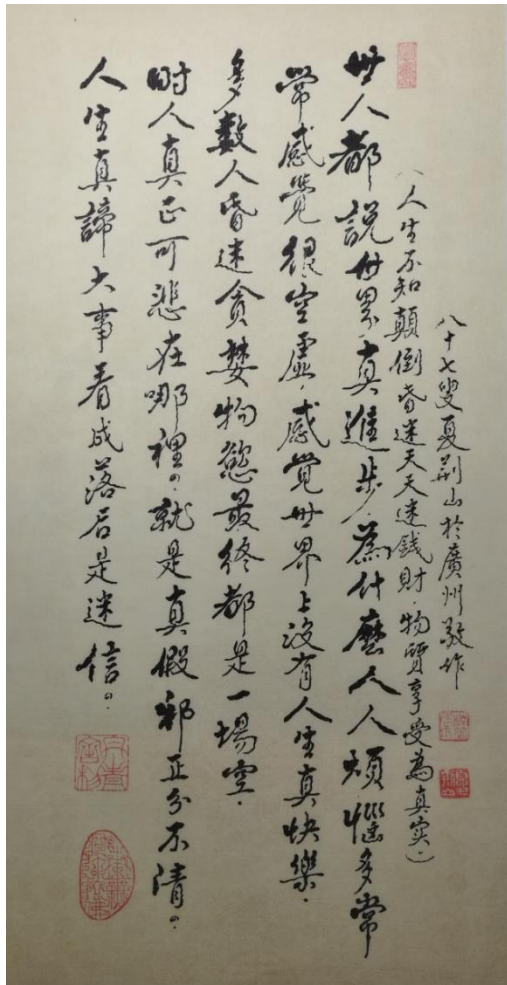 八十七叟夏荆山於廣州敬作
(人生不知顛倒昏迷天天迷錢財.物質享受為真实.)
世人都說世界.真進步.為什麽人人煩惱多常
常感覺很空虛.感覚世界上沒有人生真快樂.
多數人昏迷貪婪物慾最終都是一場空.
时人真正可悲在哪裡。就是真假邪正分不清。
人生真諦大事看成落后是迷信。